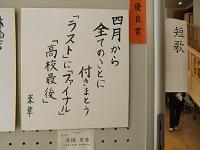 短歌
優良賞
四月から
全てのことに
付きまとう
「ラスト」に「ファイナル」
「高校最後」